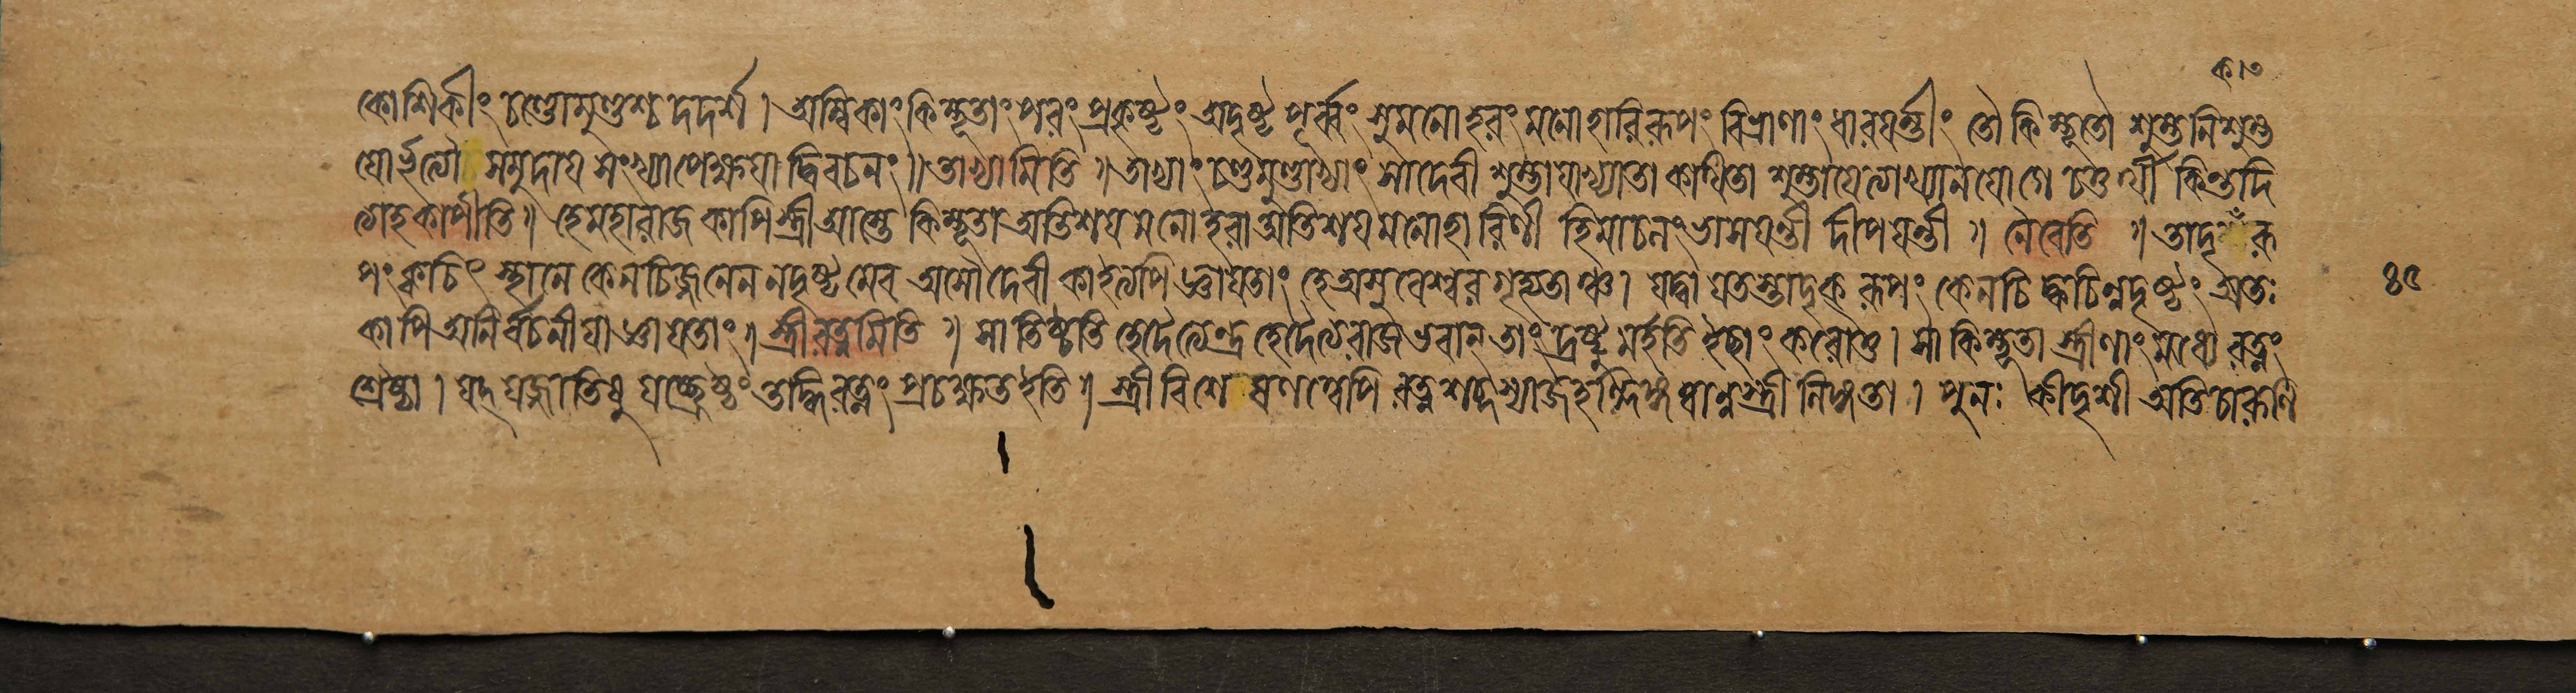 ক।৩
কৌশিকীং চণ্ডোমুণ্ডশ্চ দদর্শ। অম্বিকাং কিম্ভূতাং পরং প্রকৃষ্টং অদৃষ্ট পূর্ব্বং সুমনোহরং মনোহারিরূপং বিভ্রাণাং ধারয়ন্তীং তৌ কিম্ভূতৌ শুম্ভনিশুম্ভ
য়োর্ভৃত্যৌ সমুদায় সংখ্যাপেক্ষয়া দ্বিবচনং॥ তাভ্যামিতি॥ তাভ্যাং চণ্ডমুণ্ডাভ্যাং সা দেবী শুম্ভায়াখ্যাতা কথিতা শুম্ভায়েত্যাখ্যানযোগে চতুর্থী কিন্তদি
ত্যাহ কাপীতি॥ হে মহারাজ কাপি স্ত্রী আস্তে কিম্ভূতা অতিশয় মনোহরা অতিশয় মনোহারিণী হিমাচলং ভাসয়ন্তী দীপয়ন্তী॥ নৈবেতি॥ তাদৃক্ রূ
পং ক্বচিৎ স্থানে কেনচিজ্জনেন ন দৃষ্টমেব অসৌ দেবী কাহত্যপি জ্ঞায়তাং হে অসুরেশ্বর গৃহ্যতাঞ্চ। যদ্বা যতস্তাদৃক্ রূপং কেনচিৎ ক্বচিন্ন দৃষ্টং অতঃ
কাপি অনির্বচনীয়া জ্ঞায়তাং॥ স্ত্রীরত্নমিতি॥ সা তিষ্ঠতি হে দৈত্যেন্দ্র হে দৈত্যরাজ ভবান তাং দ্রষ্টুমর্হতি ইচ্ছাং করোতু। সা কিম্ভূতা স্ত্রীণাং মধ্যে রত্নং
শ্রেষ্ঠা। যদ্ যজ্জাতিষু যচ্ছ্রেষ্ঠং তদ্ধি রত্নং প্রচক্ষত ইতি॥ স্ত্রী বিশেষণত্বেপি রত্ন শব্দস্যাজহল্লিঙ্গত্বান্ন স্ত্রী লিঙ্গতা। পুনঃ কীদৃশী অতিচারূণি
৪৫